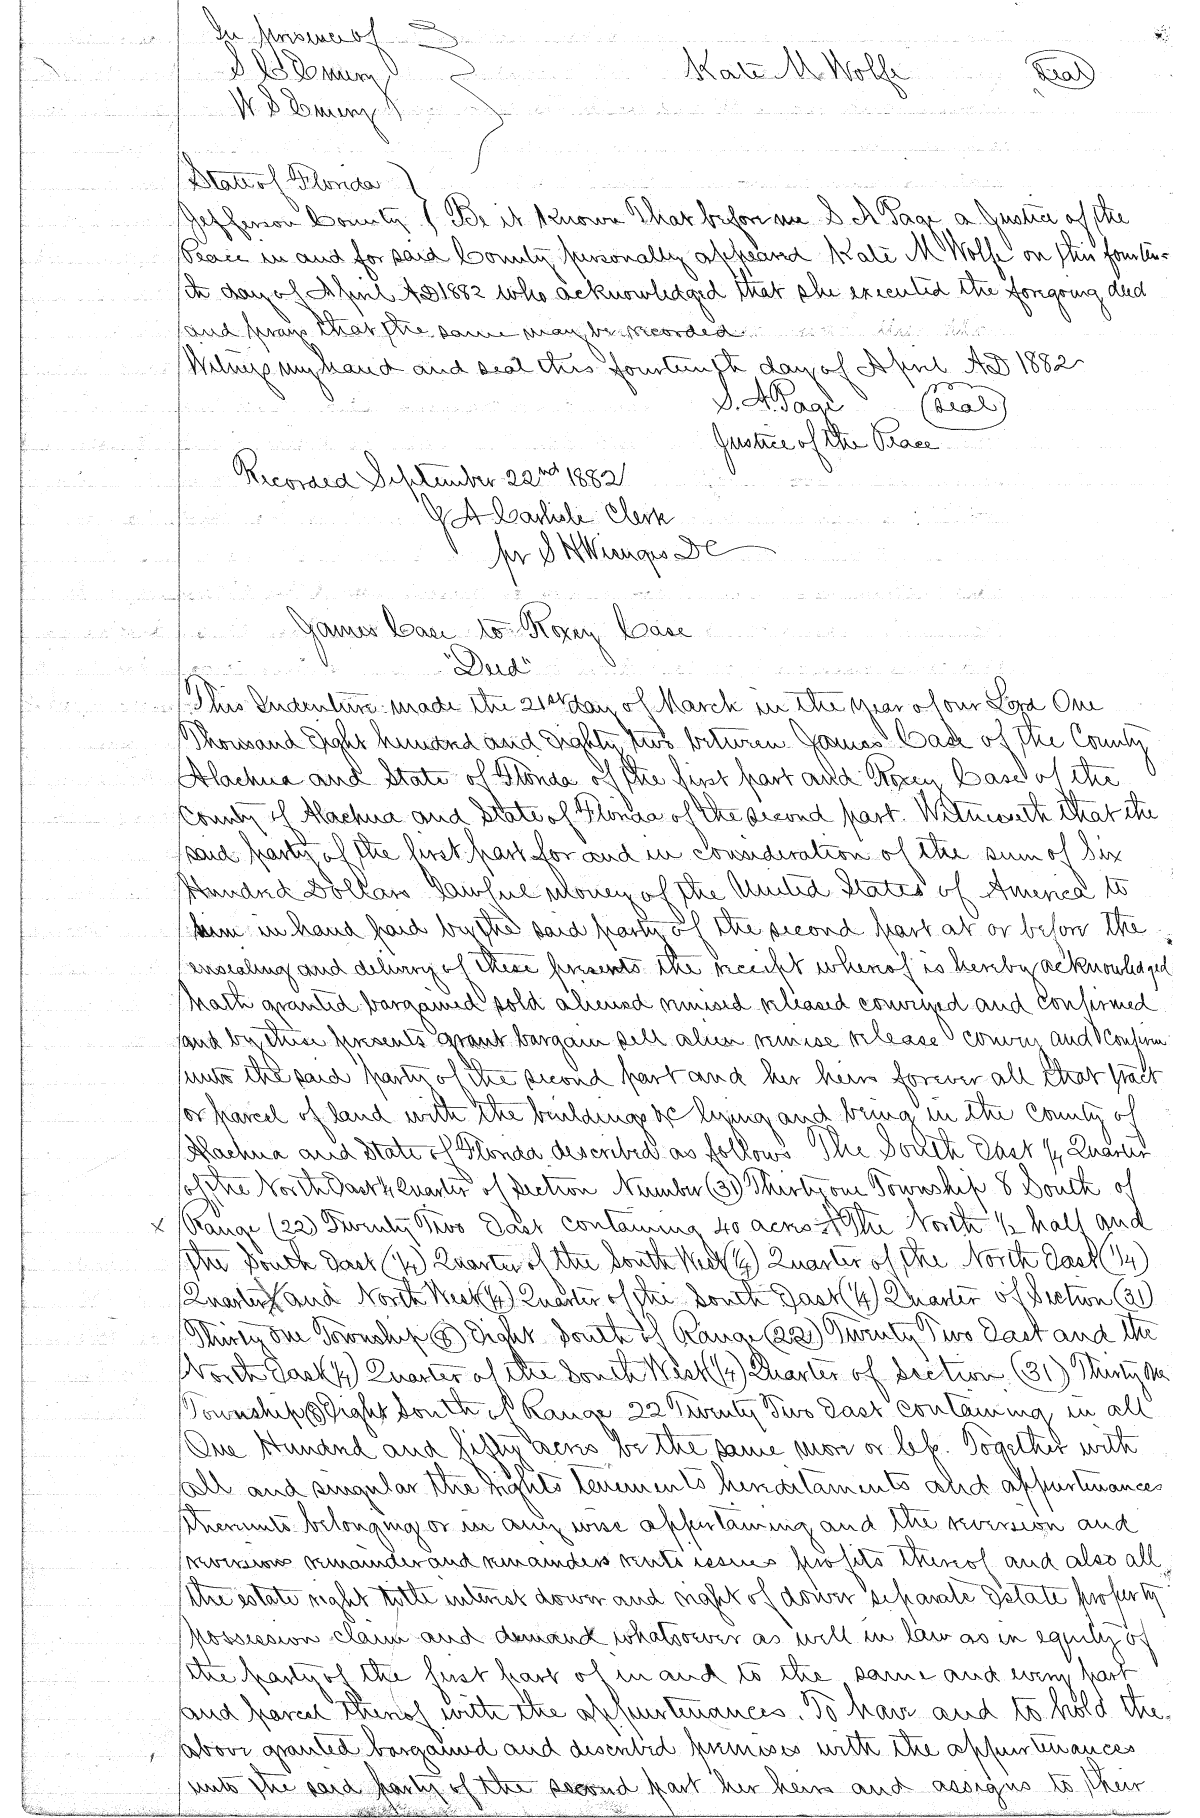 In presence of
S B Emery
W S Emery
Kate M Wolfe Seal
State of Florida
Jefferson County Be it Known That before me S A Page a Justice of the
Peace in and for said County personally appeared Kate M Wolfe on this fourteen-
th day of April AD 1882 who acknowledged that she executed the foregoing deed
and prays that the same may be recorded
Witness my hand and seal this fourteenth day of April AD 1882
S. A. Page Seal
Justice of the Peace
Recorded September 22nd 1882
J A Carlisle Clerk
pr S H Wienges DC
James Case to Roxey Case
"Deed"
This Indenture made the 21st day of March in the year of our Lord One
Thousand Eight hundred and Eighty two between James Case of the County
Alachua and State of Florida of the first part and Roxey Case of the
County of Alachua and State of Florida of the second part. Witnesseth that the
said party of the first part for and in consideration of the sum of Six
Hundred Dollars lawful money of the United States of America to
him in hand paid by the said party of the second part at or before the
ensealing and delivery of these presents the receipt whereof is hereby acknowledged
hath granted bargained sold aliened remised released conveyed and confirmed
and by these presents grant bargain sell alien remise release convey and confirm
unto the said party of the second part and her heirs forever all that tract
or parcel of land with the buildings &c lying and being in the County of
Alachua and State of Florida described as follows The South East 1/4 Quarter
of the North East 1/4 Quarter of Section Number (31) Thirty one Township 8 South of
x Range (22) Twenty Two East containing 40 acres + The North 1/2 half and
the South East (1/4) Quarter of the South West (1/4) Quarter of the North East (1/4)
Quarter and North West (1/4) Quarter of the South East (1/4) Quarter of Section (31)
Thirty One Township (8) Eight South of Range (22) Twenty Two East and the
North East (1/4) Quarter of the South West (1/4) Quarter of Section (31) Thirty One
Township (8) Eight South of Range 22 Twenty Two East containing in all
One Hundred and fifty acres be the same more or less. Together with
all and singular the rights tenements hereditaments and appurtenances
thereunto belonging or in any wise appertaining and the reversion and
reversions remainder and remainders rents issues profits thereof and also all
the estate right title interest dower and right of dower separate Estate property
possession claim and demand whatsoever as well in law as in equity of
the party of the first part of in and to the same and every part
and parcel thereof with the appurtenances. To have and to hold the
above granted bargained and described premises with the appurtenances
unto the said party of the second part her heirs and assigns to their